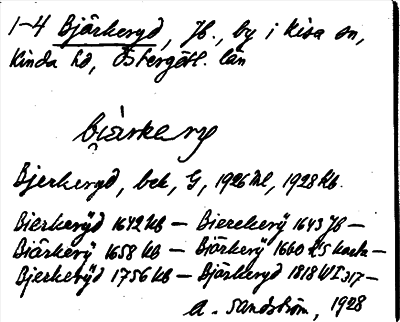 1-4 Bjärkeryd, Jb., by i Kisa sn,
Kinda hd, Östergötl. län
biärkery
Bjerkeryd, bek, G, 1926 ml, 1928 kb.
Bierkerÿd 1642 kb – Bierekerÿ 1643 Jb –
Biärkerÿ 1658 kb – Biörkerÿ 1660
Bjerkerÿd 1756 kb – Bjärkeryd 1818 317 –
A. Sandström, 1928